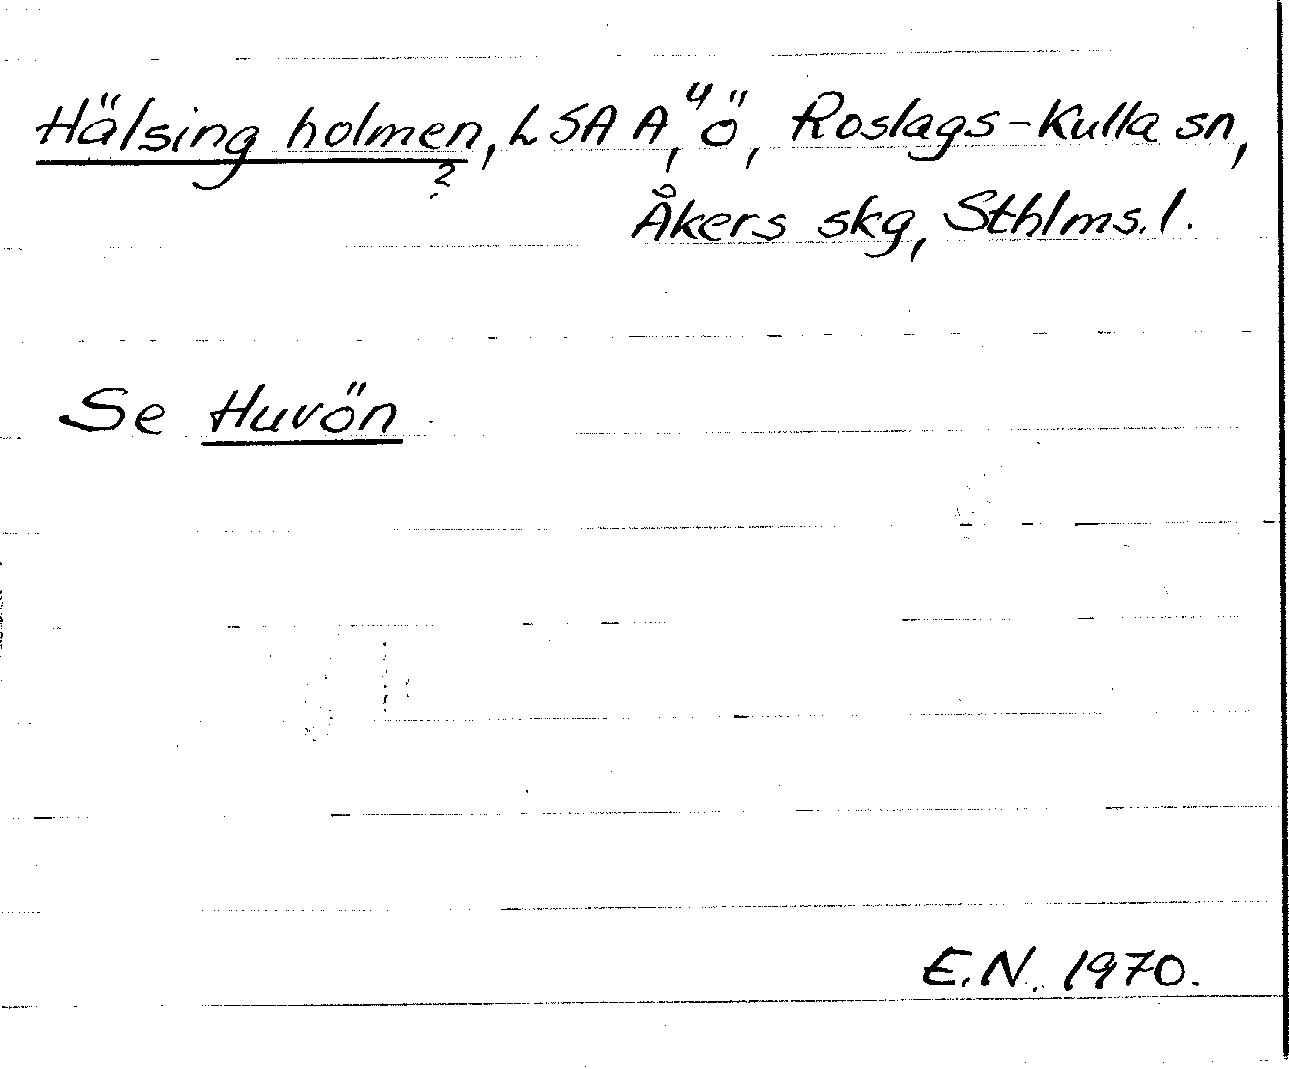 Hälsing holmen, LSA A⁴, ö, Roslags-Kulla sn,
?
Åkers skg, Sthlms. l.
Se Huvön
E.N. 1970.